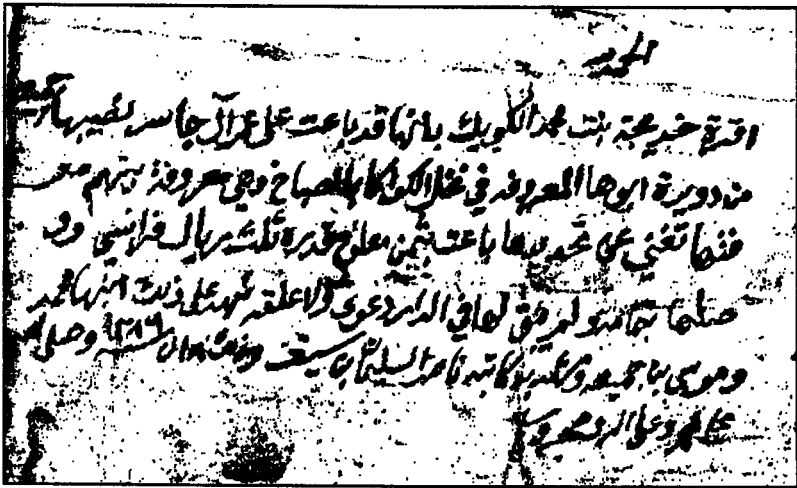 الحمد لله
اقرة خديجة بنت محمد الكويك بانها قد باعت على عمر آل جاسر نصيبها
من دويرة ابوها المعروفه في نخل الكواكا بالصباخ وهي معروفة بينهم معر
فتها تغني عن تحديدها باعت بثمن معلوم قدره ثلث ريال فرانسي وو
صلها بتمامه ولم بقى لها في الدار دعوى ولا علقه شهد على ذلك ابنها محمد
وموسى بن وشهد به كاتبه ناصر السليمان بن سيف وذلك سنة وصلى الله
على محمد وعلى اله وصحبه وسلم